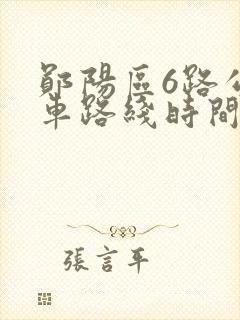 鄖陽區6路公
車路綫時間
張言平